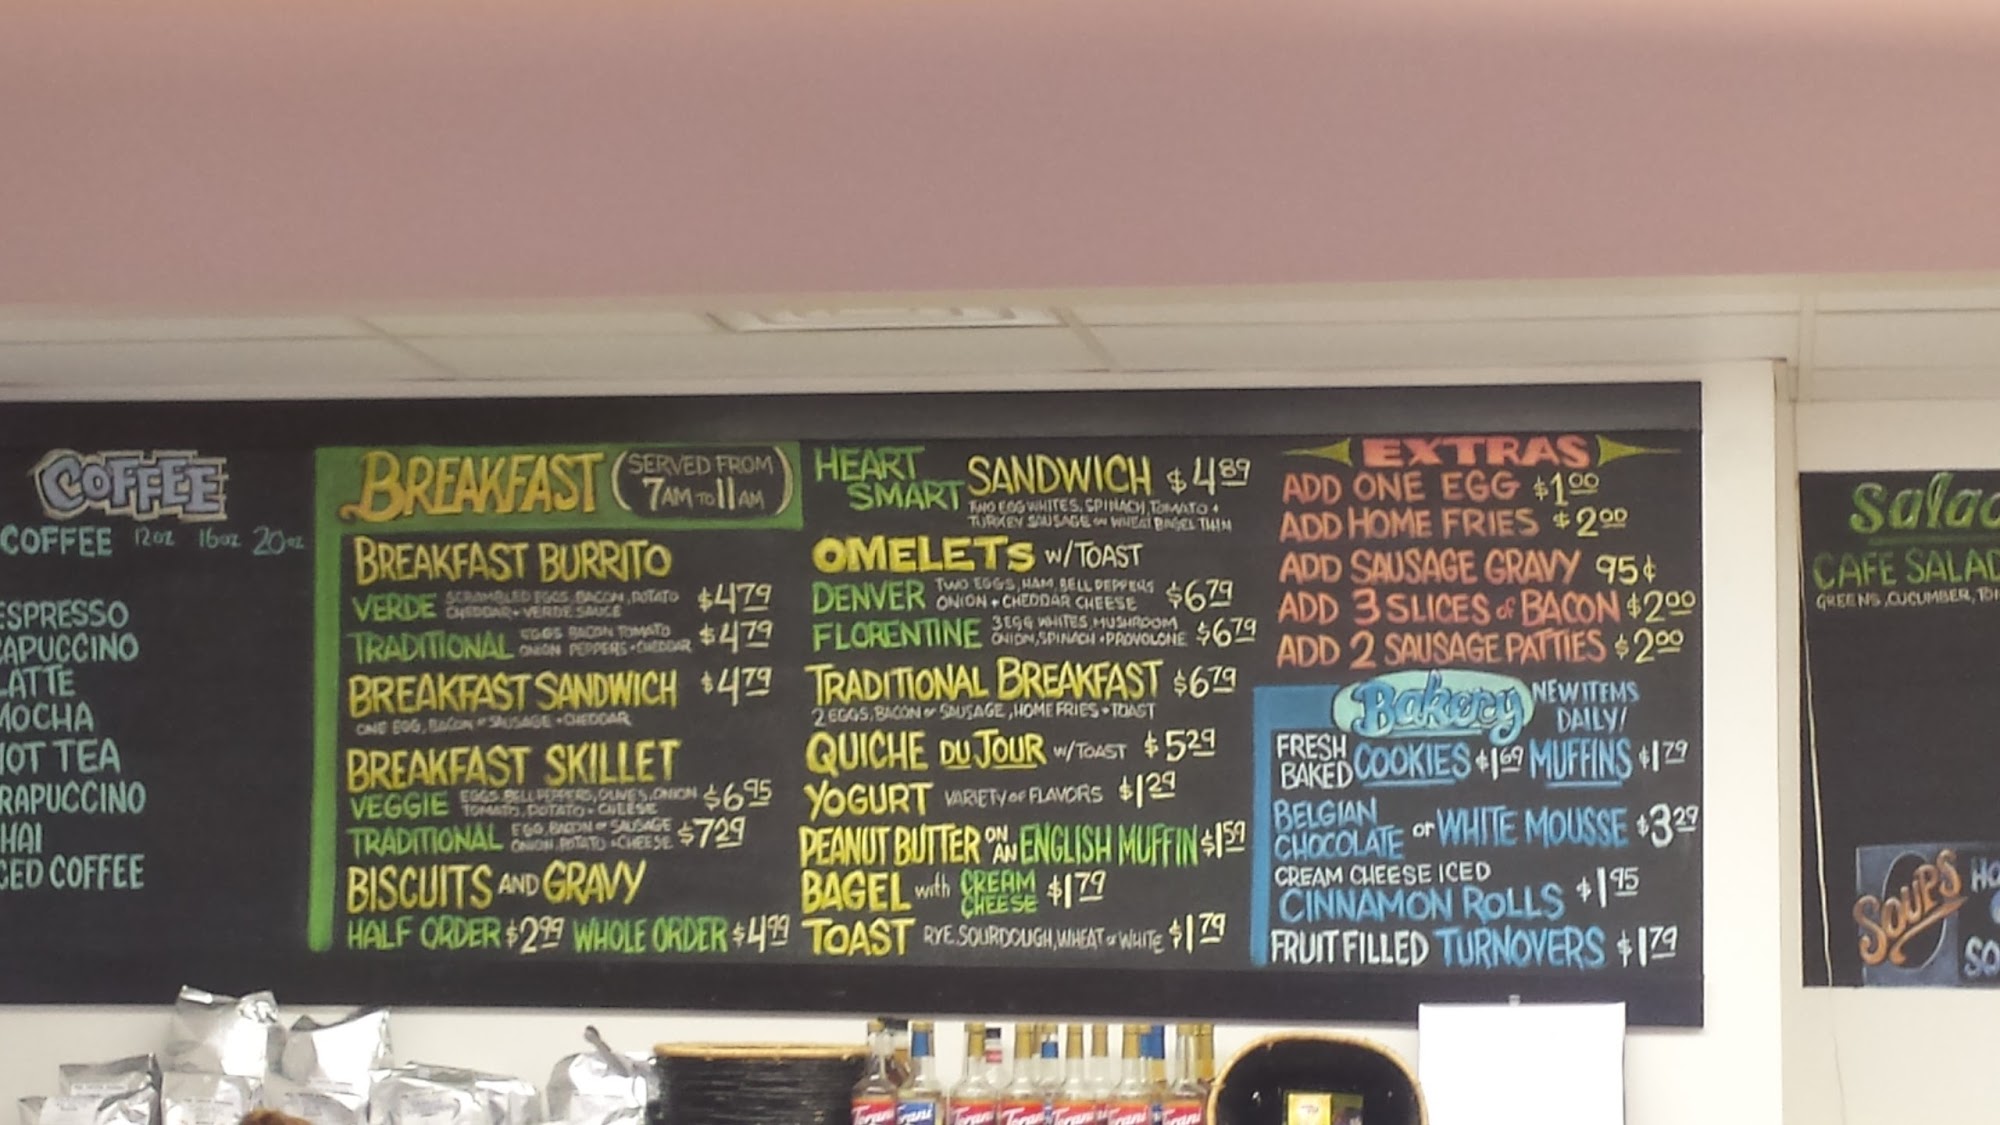 COFFEE
COFFEE 12oz 16oz 20oz
ESPRESSO
CAPUCCINO
LATTE
MOCHA
HOT TEA
FRAPUCCINO
CHAI
ICED COFFEE
BREAKFAST (SERVED FROM
7AM TO 11AM)
BREAKFAST BURRITO
VERDE SCRAMBLED EGGS, BACON, POTATO $4.79
CHEDDAR + VERDE SAUCE
TRADITIONAL EGGS BACON TOMATO $4.79
ONION PEPPERS + CHEDDAR
BREAKFAST SANDWICH $4.79
ONE EGG, BACON or SAUSAGE + CHEDDAR
BREAKFAST SKILLET
VEGGIE EGGS, BELL PEPPERS, OLIVES, ONION $6.95
TOMATO, POTATO + CHEESE
TRADITIONAL EGG, BACON or SAUSAGE $7.29
ONION, POTATO + CHEESE
BISCUITS AND GRAVY
HALF ORDER $2.99 WHOLE ORDER $4.99
HEART
SMART SANDWICH $4.89
TWO EGG WHITES, SPINACH, TOMATO +
TURKEY SAUSAGE ON WHEAT BAGEL THIN
OMELETS W/TOAST
DENVER TWO EGGS, HAM, BELL PEPPERS $6.79
ONION + CHEDDAR CHEESE
FLORENTINE 3 EGG WHITES, MUSHROOM $6.79
ONION, SPINACH + PROVOLONE
TRADITIONAL BREAKFAST $6.79
2 EGGS, BACON or SAUSAGE, HOME FRIES + TOAST
QUICHE DU JOUR W/TOAST $5.29
YOGURT VARIETY OF FLAVORS $1.29
PEANUT BUTTER ON AN ENGLISH MUFFIN $1.59
BAGEL with CREAM CHEESE $1.79
TOAST RYE, SOURDOUGH, WHEAT or WHITE $1.79
EXTRAS
ADD ONE EGG $1.00
ADD HOME FRIES $2.00
ADD SAUSAGE GRAVY 95¢
ADD 3 SLICES of BACON $2.00
ADD 2 SAUSAGE PATTIES $2.00
Bakery NEW ITEMS
DAILY!
FRESH BAKED COOKIES $1.69 MUFFINS $1.79
BELGIAN CHOCOLATE or WHITE MOUSSE $3.29
CREAM CHEESE ICED
CINNAMON ROLLS $1.95
FRUIT FILLED TURNOVERS $1.79
Salad
CAFE SALAD
GREENS, CUCUMBER, TO
SOUPS
HO
SO
Torani Torani Torani Torani Torani Torani Torani